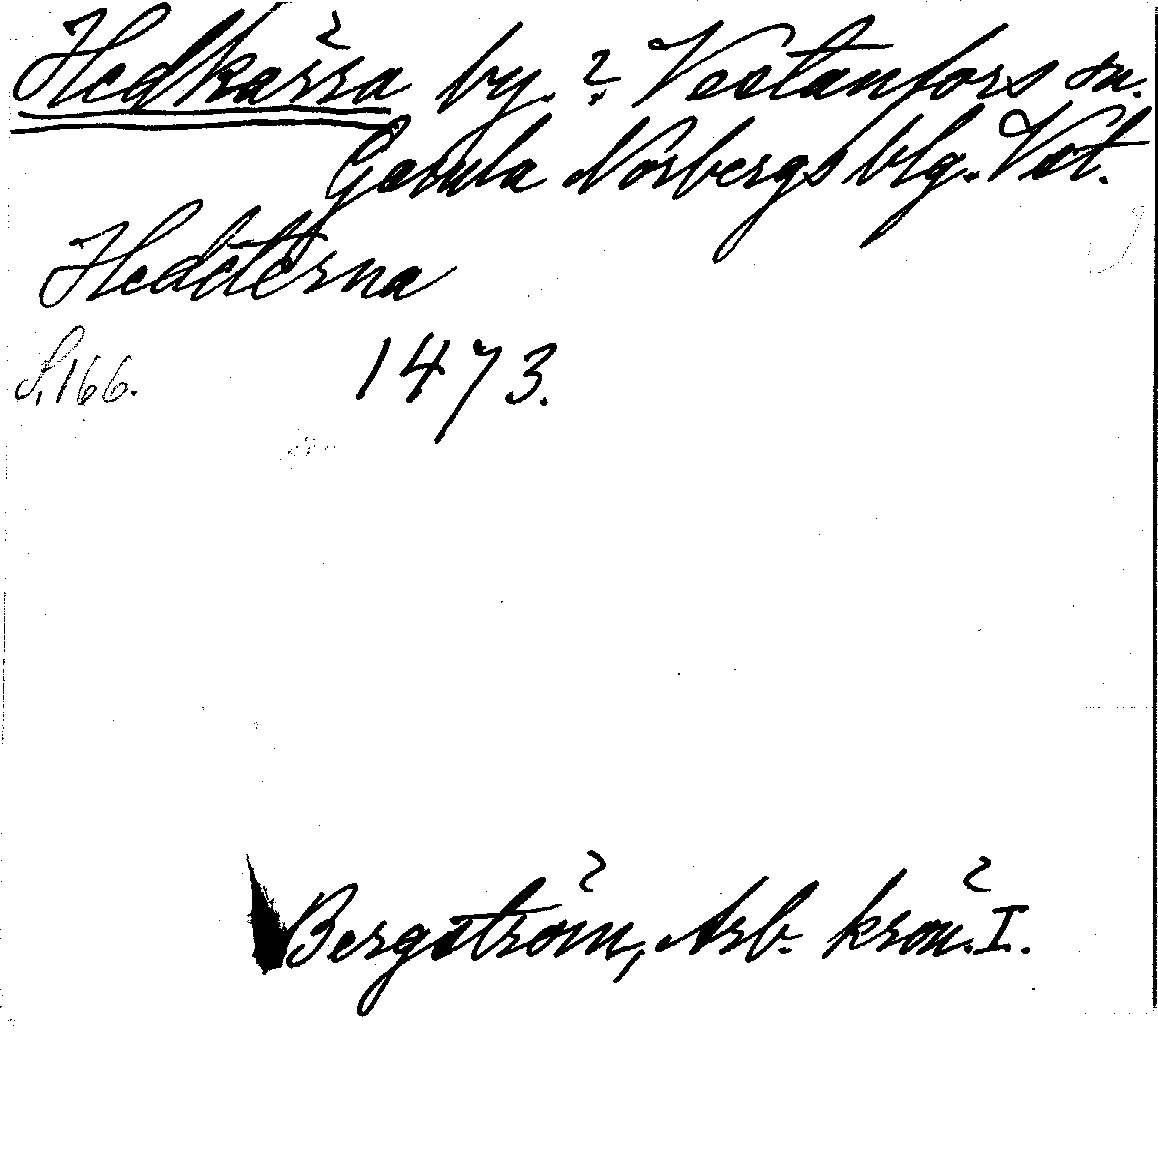 Hedkärra by. ? Vestanfors sn.
Gamla Norbergs blg. Vstl.
Hedeterna
S. 166. 1473.
Bergström, Arb. krön. I.